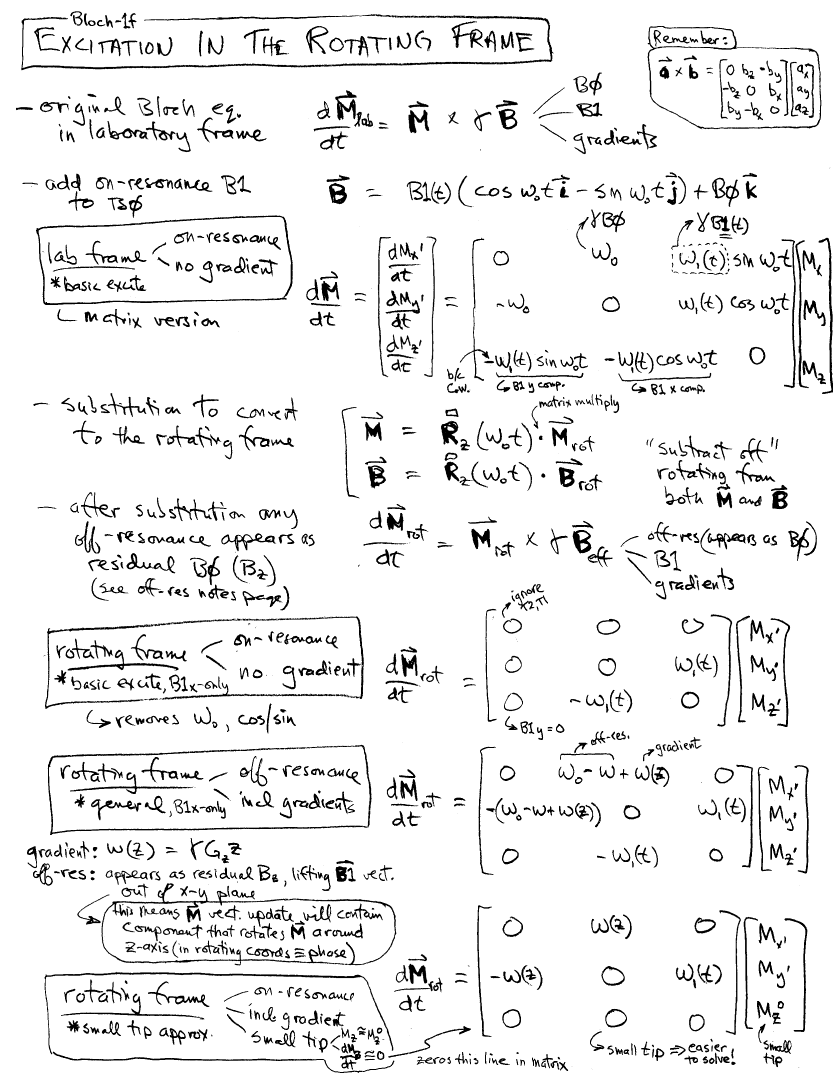 Bloch-1f
EXCITATION IN THE ROTATING FRAME
Remember:
a × b = [0 bz -by] [ax]
[-bz 0 bx] [ay]
[by -bx 0] [az]
- original Bloch eq.
in laboratory frame
dM lab/dt = M × γB
BØ
B1
gradients
- add on-resonance B1
to TSØ
B = B1(t) (cos ω₀t i - sin ω₀t j) + BØ k
lab frame
on-resonance
no gradient
*basic excite
matrix version
γBØ
γB1(t)
dM/dt = [dMx'/dt] = [0 ω₀ ω₁(t) sin ω₀t] [Mx]
[dMy'/dt] [-ω₀ 0 ω₁(t) cos ω₀t] [My]
[dMz'/dt] [-ω₁(t) sin ω₀t -ω₁(t) cos ω₀t 0] [Mz]
b/c
B1 y comp.
B1 x comp.
- substitution to convert
to the rotating frame
matrix multiply
M = Rz(ω₀t) · M rot
B = Rz(ω₀t) · B rot
"subtract off"
rotating from
both M and B
- after substitution any
off-resonance appears as
residual BØ (Bz)
(see off-res notes page)
dM rot/dt = M rot × γB eff
off-res (appears as BØ)
B1
gradients
rotating frame
on-resonance
no gradient
*basic excite, B1x-only
removes ω₀, cos/sin
ignore
T2,T1
dM rot/dt = [0 0 0] [Mx']
[0 0 ω₁(t)] [My']
[0 -ω₁(t) 0] [Mz']
B1y=0
rotating frame
off-resonance
incl gradients
*general, B1x-only
off-res.
gradient
dM rot/dt = [0 ω₀-ω+ω(z) 0] [Mx']
[-(ω₀-ω+ω(z)) 0 ω₁(t)] [My']
[0 -ω₁(t) 0] [Mz']
gradient: ω(z) = γGz z
off-res: appears as residual Bz, lifting B1 vect.
out of x-y plane
this means M vect. update will contain
component that rotates M around
z-axis (in rotating coords ≡ phase)
rotating frame
on-resonance
incl gradient
small tip
Mz ≅ Mz⁰
dMz/dt ≅ 0
*small tip approx.
dM rot/dt = [0 ω(z) 0] [Mx']
[-ω(z) 0 ω₁(t)] [My']
[0 0 0] [Mz⁰]
zeros this line in matrix
small tip ⇒ easier
to solve!
small
tip